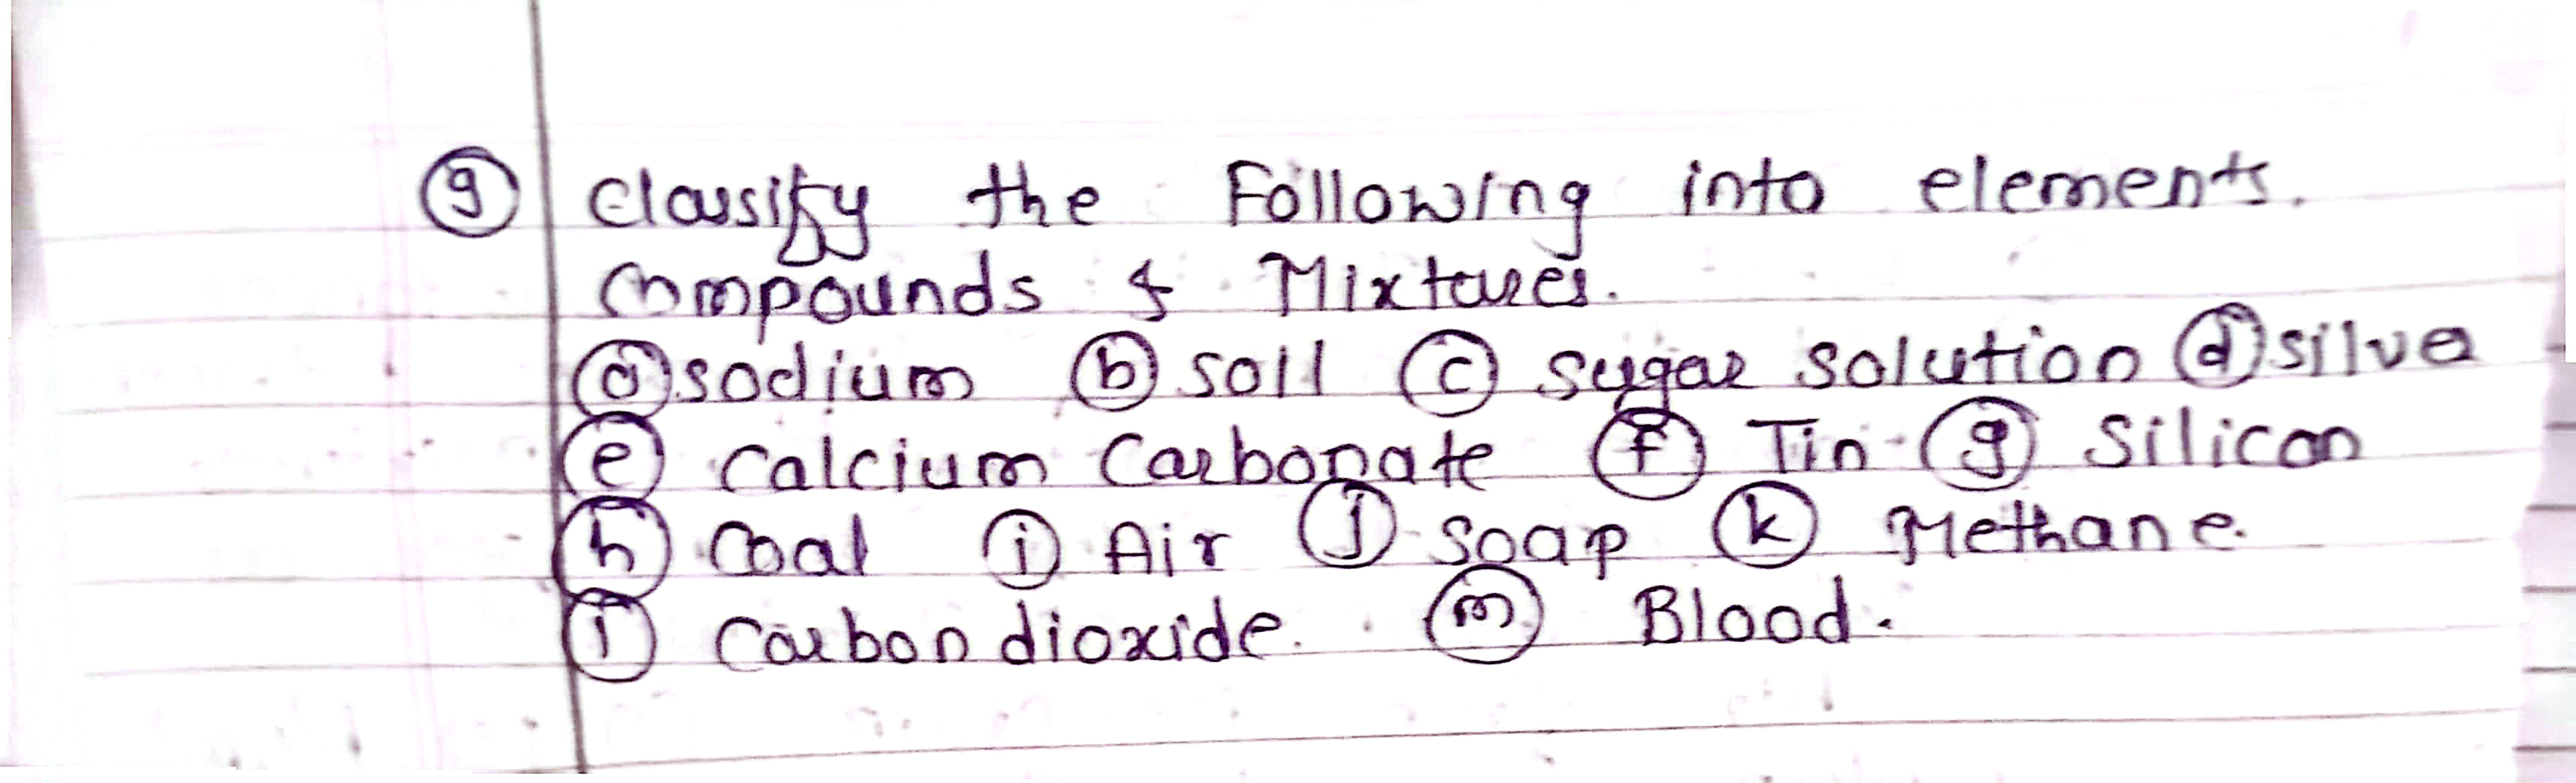 9 Classify the Following into elements.
Compounds & Mixtures.
a sodium b soil c sugar solution d silve
e Calcium Carbonate f Tin g Silicon
h Coal i Air j Soap k Methane.
l Carbon dioxide. m Blood.